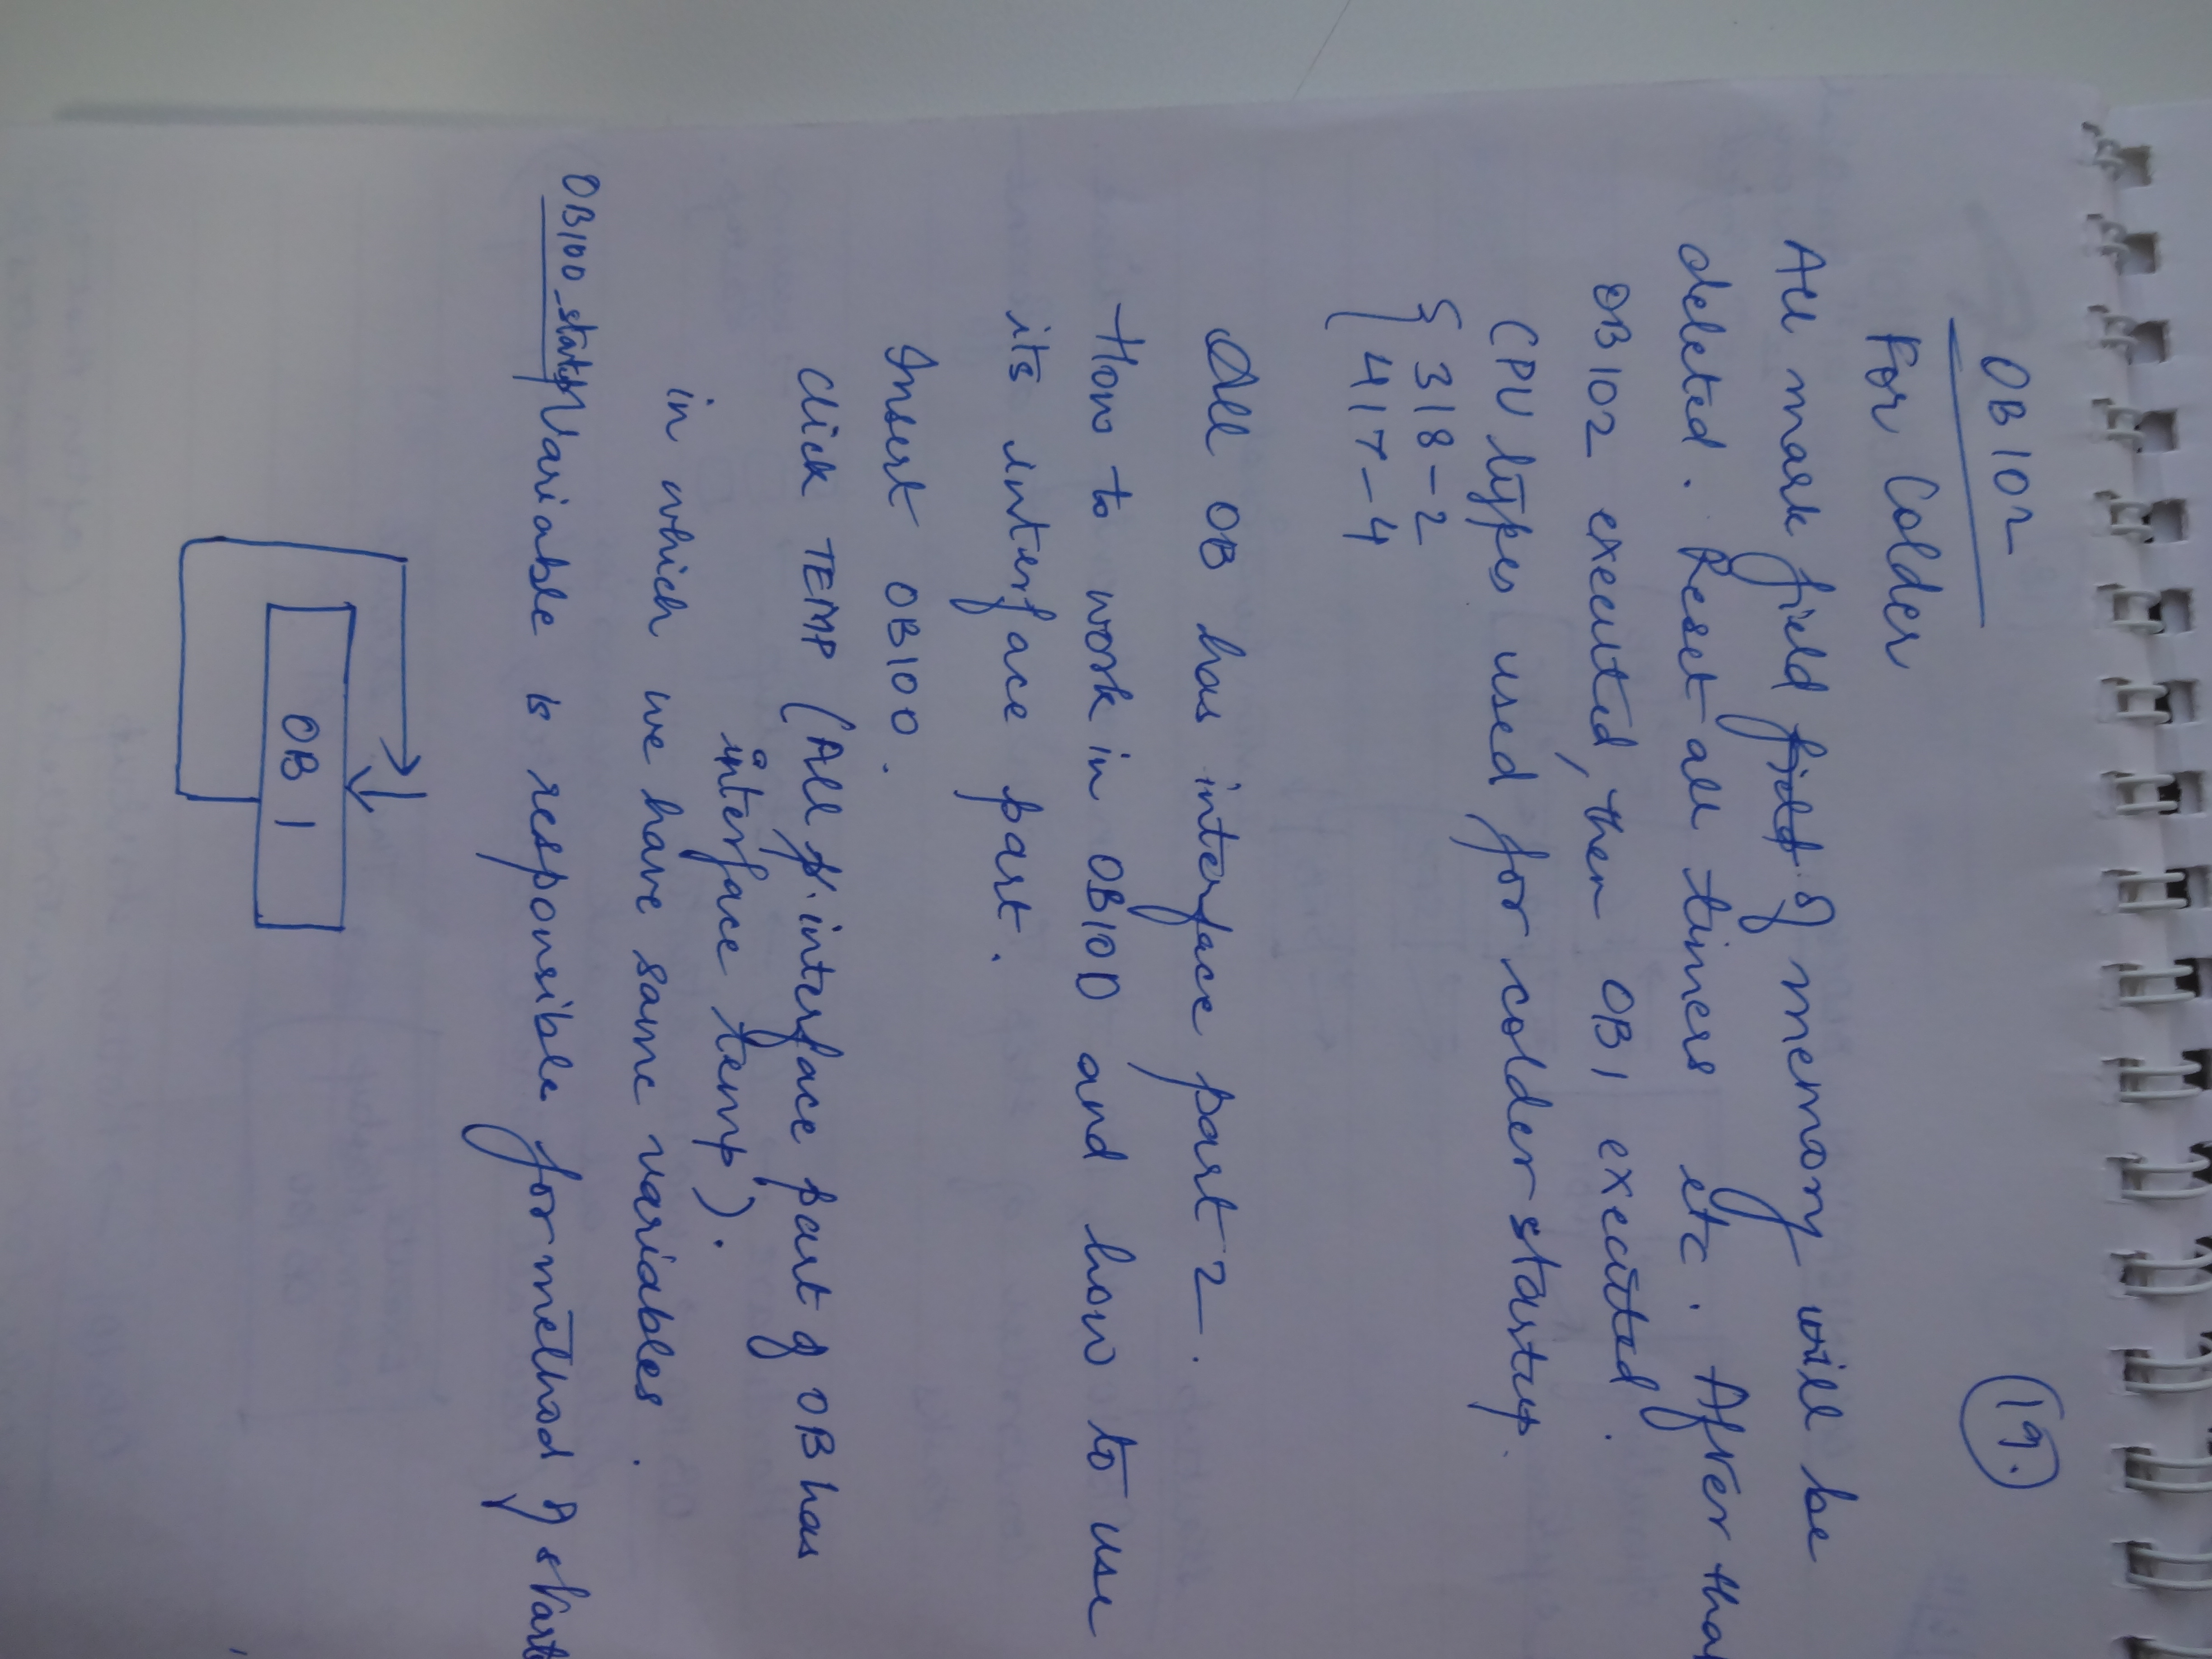 19.
OB 102
For Colder
All mark field of memory will be
deleted. Reset all timers etc. After that
OB 102 executed, then OB 1 executed.
CPU types used for colder startup.
{ 318-2
417-4
All OB has interface part 2.
How to work in OB100 and how to use
its interface part.
Insert OB100.
Click TEMP (All interface part of OB has
interface temp).
in which we have same variables.
OB100_startup Variable is responsible for method of start
OB 1